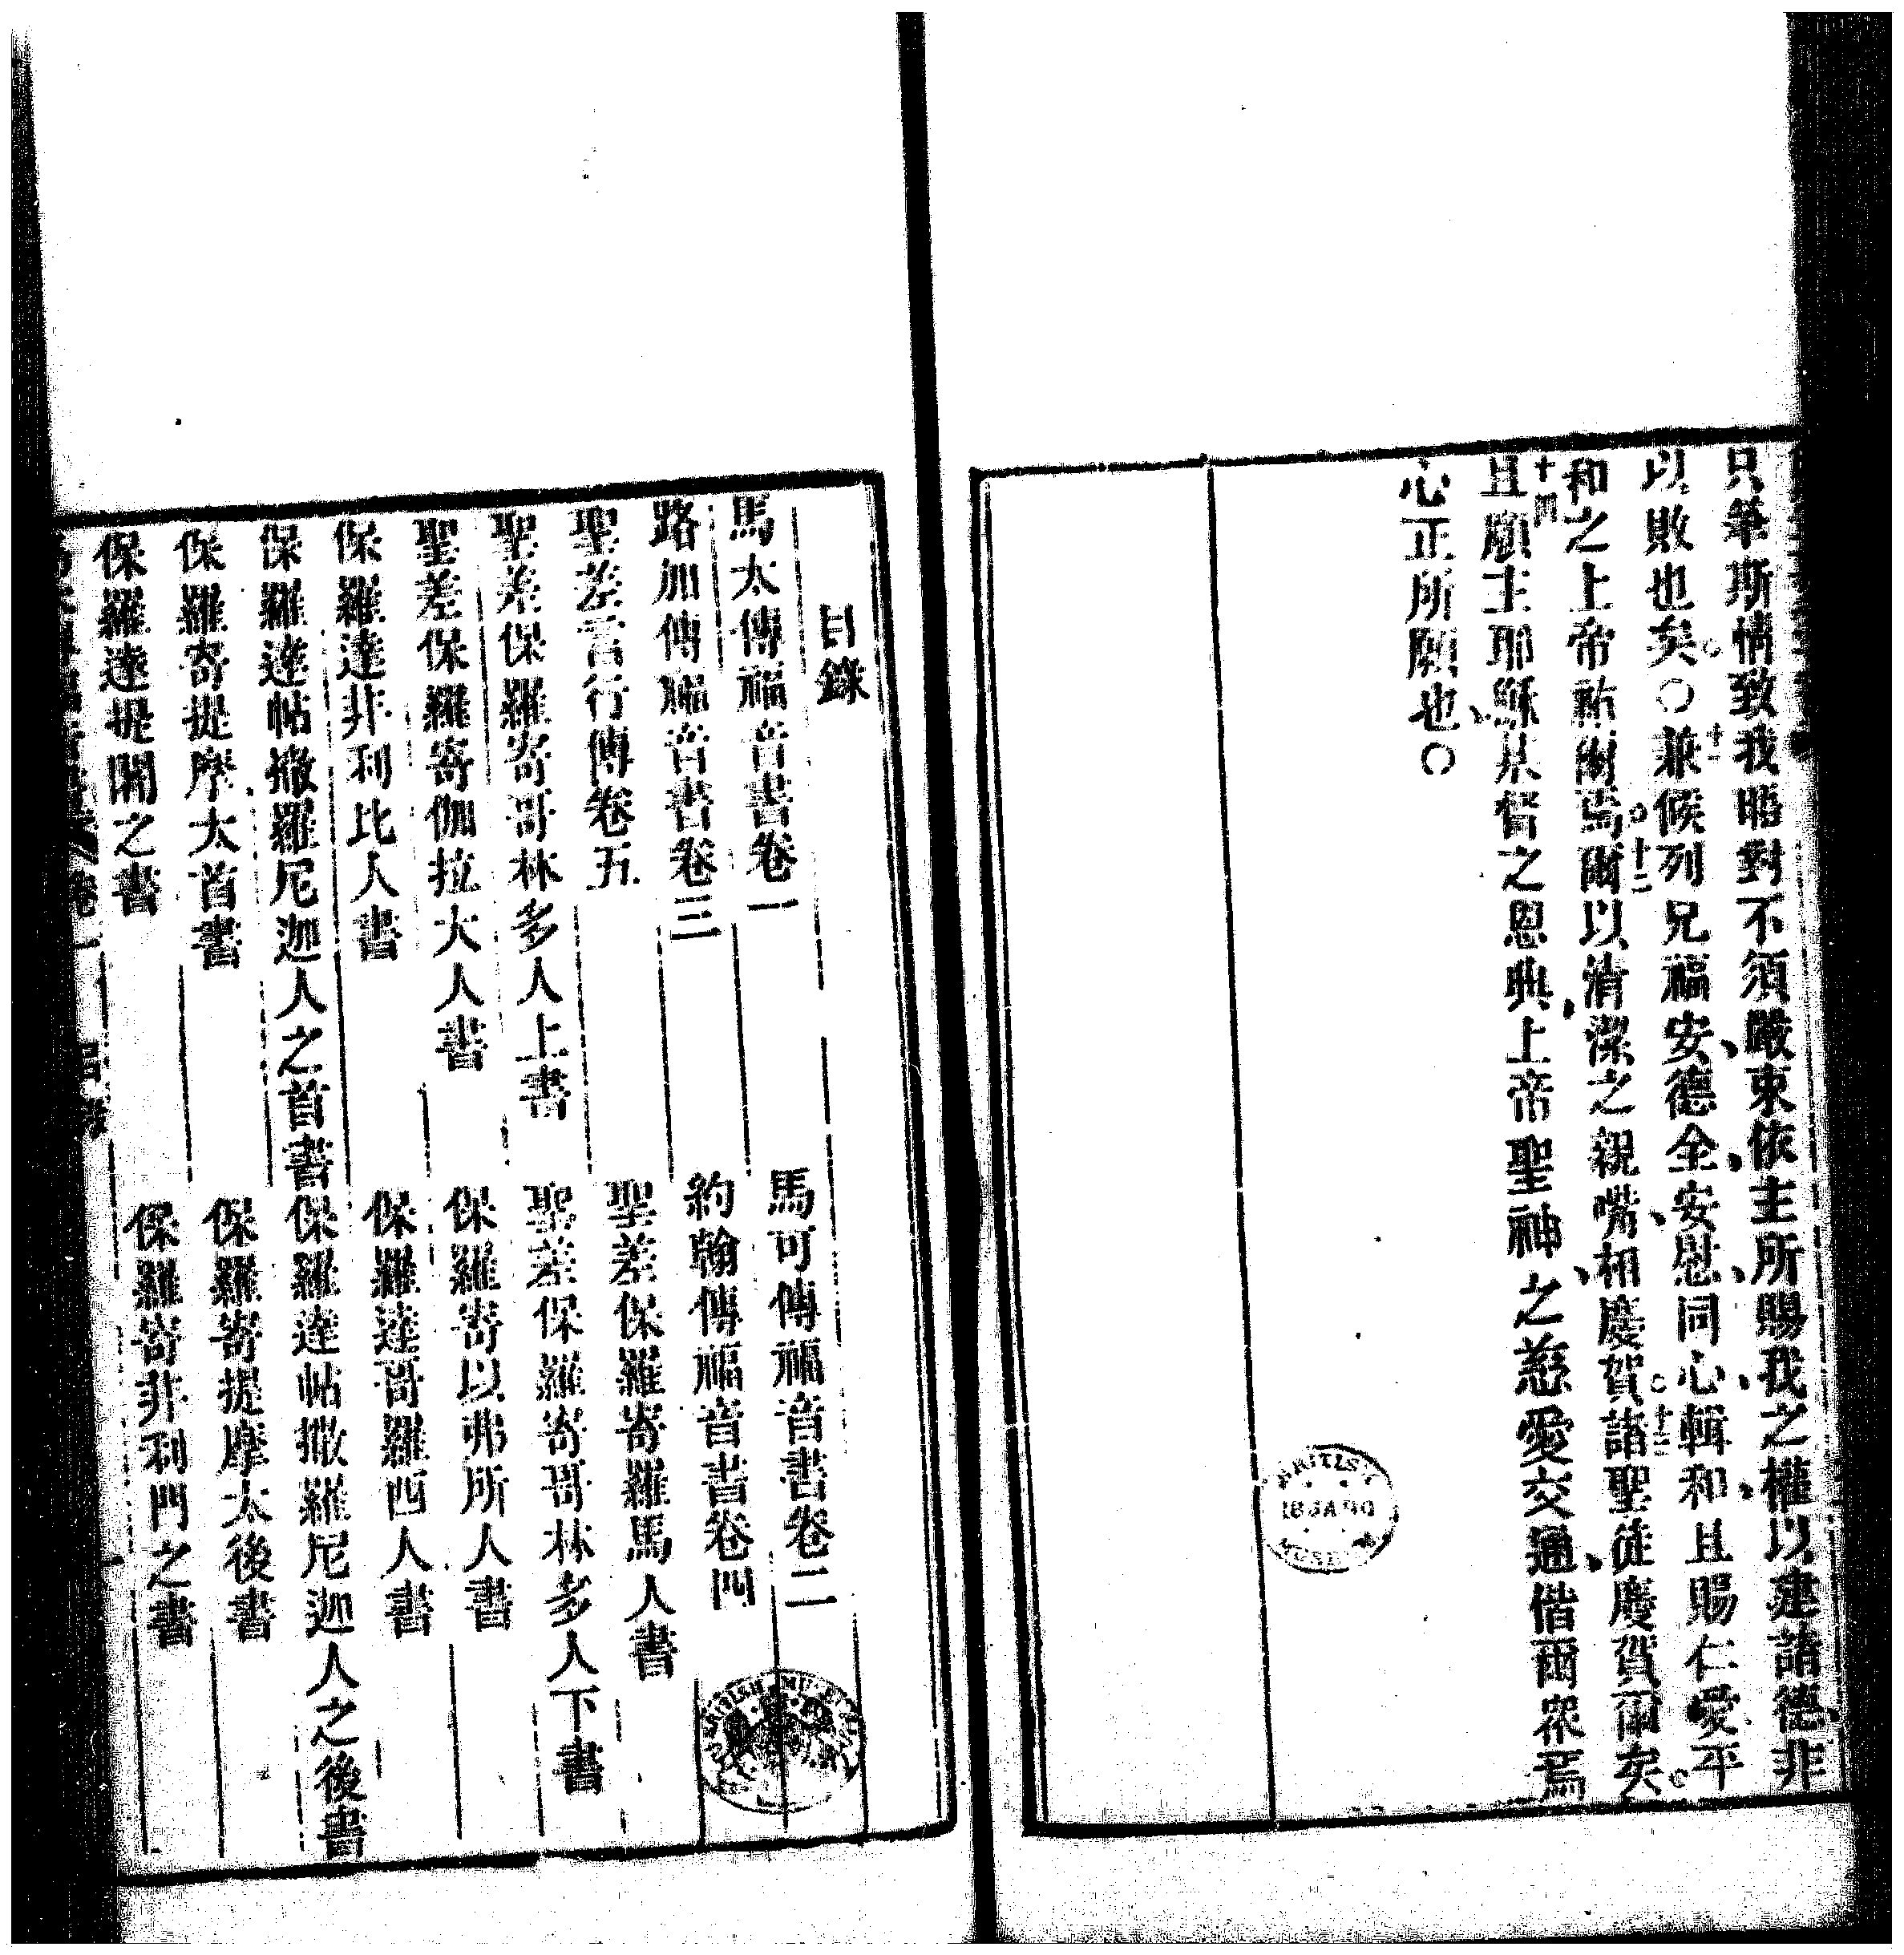 只筆斯情致我晤對不須嚴束依主所賜我之權以建諸德非
以敗也矣○十一兼候列兄福安德全安慰同心輯和且賜仁愛平
和之上帝祐爾焉十二爾以清潔之親嘴相慶賀十三諸聖徒慶賀爾矣
十四且願主耶穌基督之恩典上帝聖神之慈愛交通偕爾眾焉
心正所願也○
BRITISH MUSEUM
目錄
馬太傳福音書卷一 馬可傳福音書卷二
路加傳福音書卷三 約翰傳福音書卷四
聖差言行傳卷五 聖差保羅寄羅馬人書
聖差保羅寄哥林多人上書 聖差保羅寄哥林多人下書
聖差保羅寄伽拉大人書 保羅寄以弗所人書
保羅達非利比人書 保羅達哥羅西人書
保羅達帖撒羅尼迦人之首書 保羅達帖撒羅尼迦人之後書
保羅寄提摩太首書 保羅寄提摩太後書
保羅達提多之書 保羅寄非利門之書
卷一 目錄 一
BRITISH MUSEUM